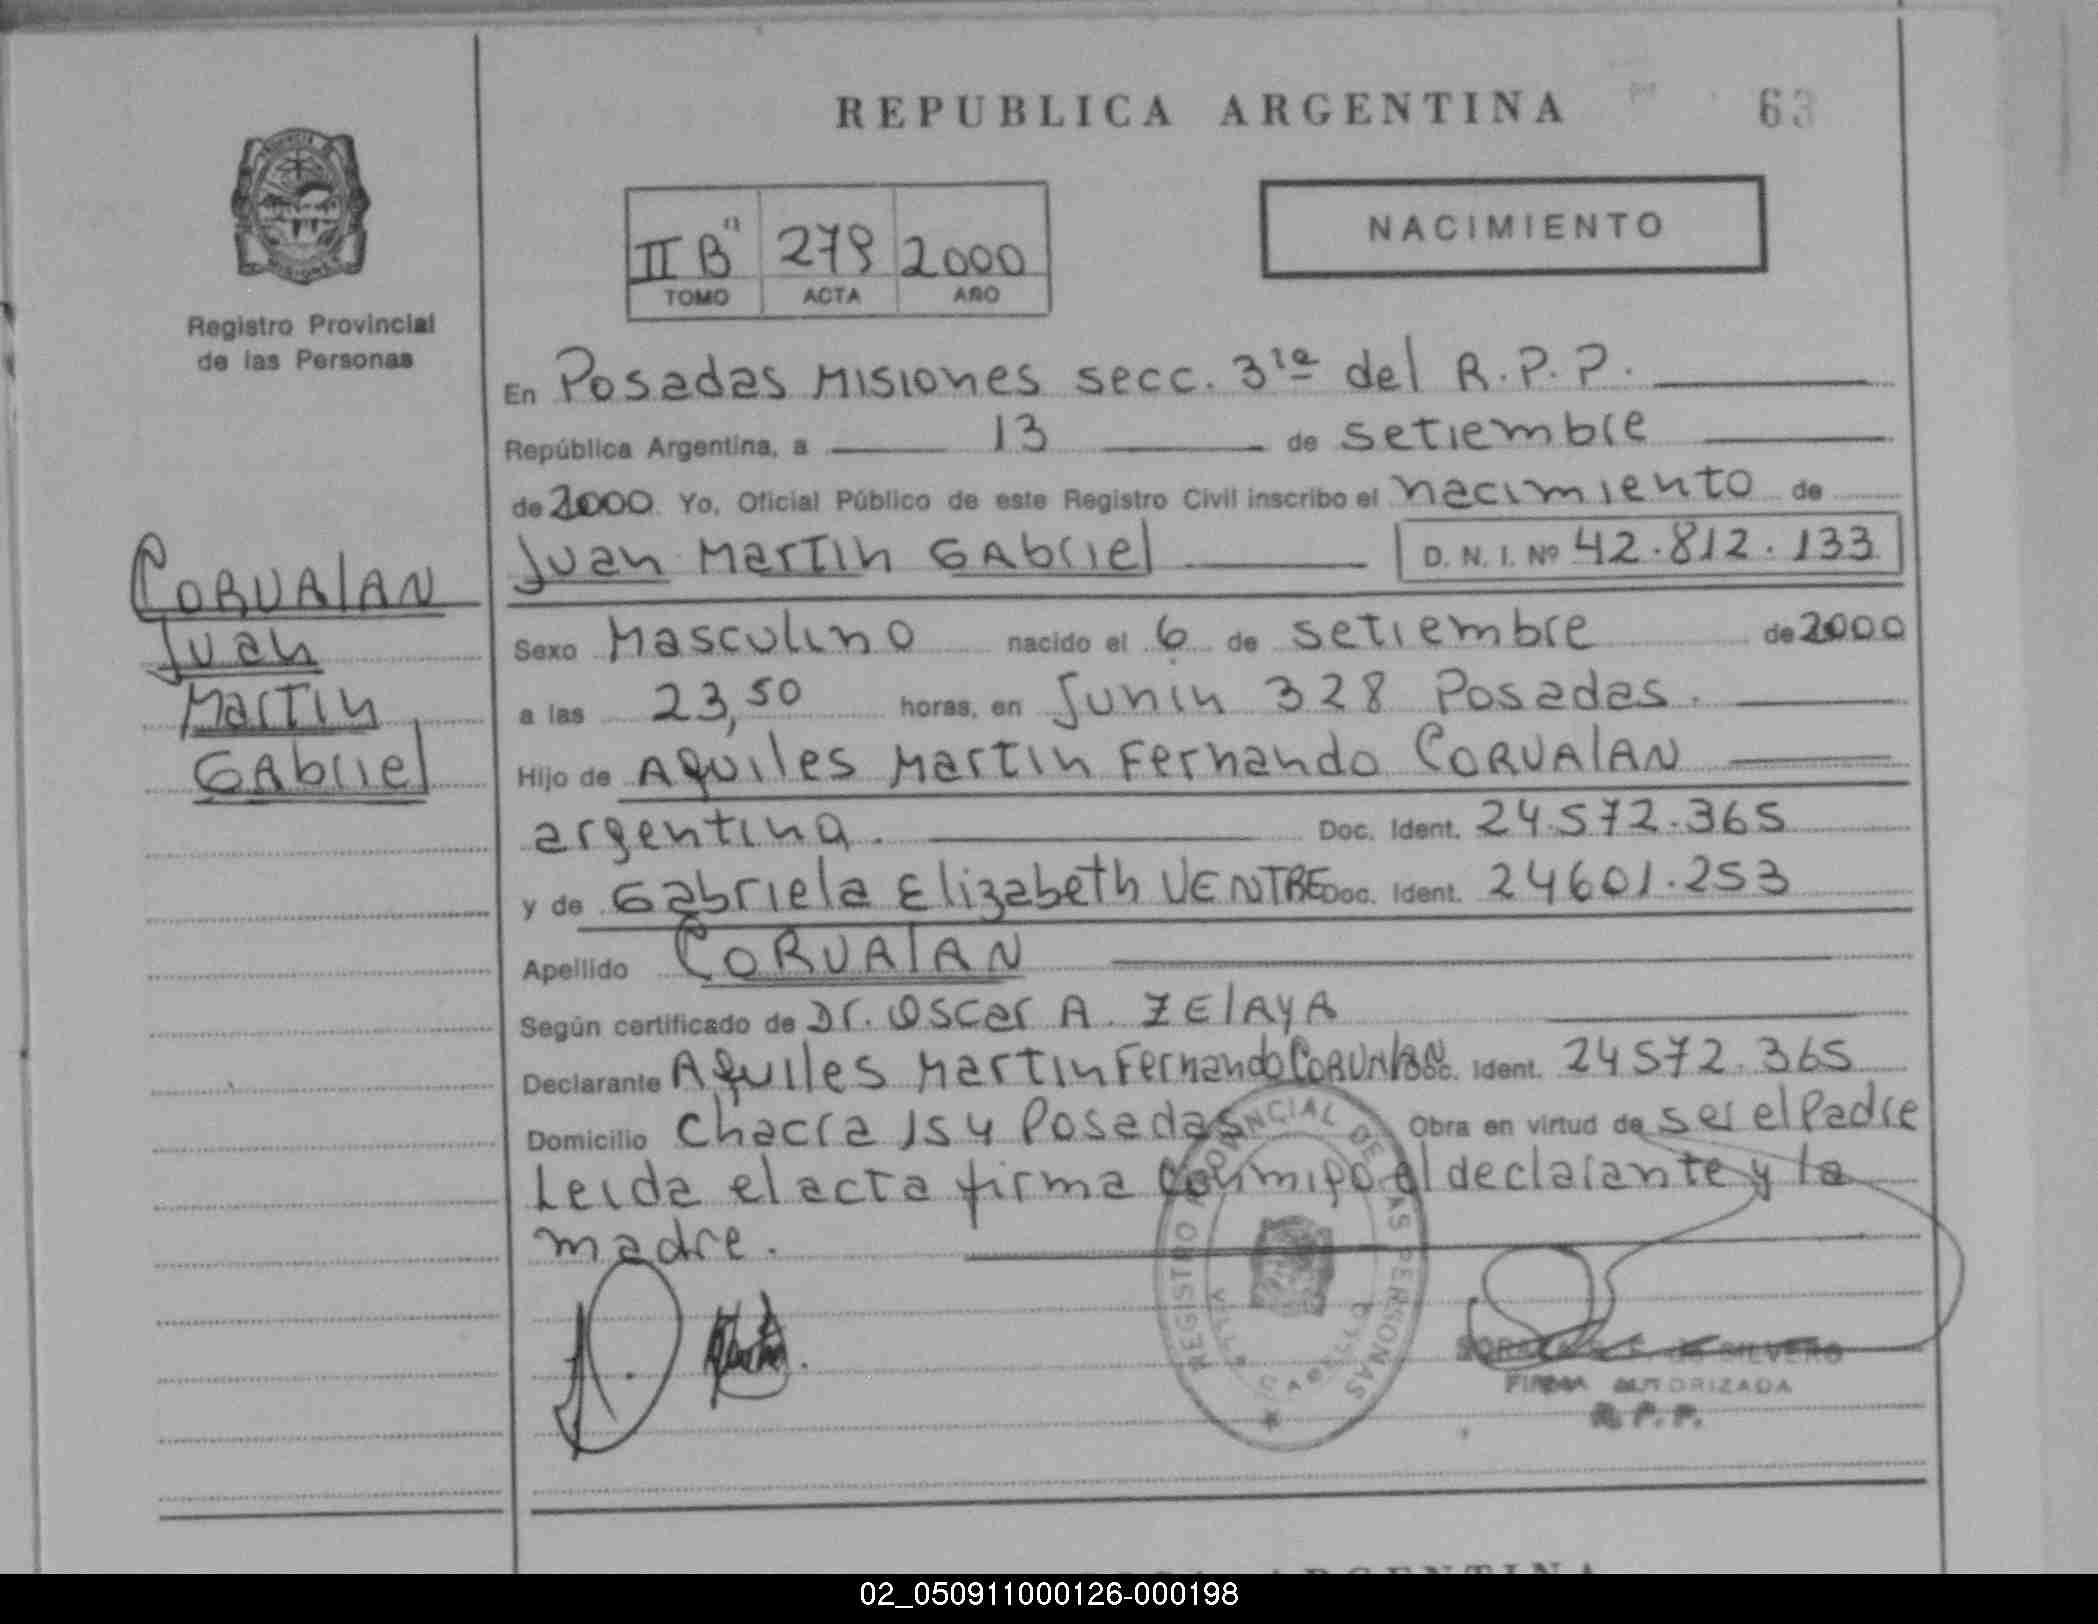 REPUBLICA ARGENTINA 63
II B" 279 2000
TOMO ACTA AÑO
NACIMIENTO
Registro Provincial
de las Personas
En Posadas Misiones secc. 3ra del R.P.P.
República Argentina, a 13 de setiembre
de 2000 Yo, Oficial Público de este Registro Civil inscribo el nacimiento de
Juan Martin GAbriel D. N. I. Nº 42.812.133
CORVAlAN
Juan
Martin
GAbriel
Sexo Masculino nacido el 6 de setiembre de 2000
a las 23,50 horas, en Junin 328 Posadas.
Hijo de Aquiles Martin Fernando CORVAlAN
argentina. Doc. Ident. 24.572.365
y de Gabriela Elizabeth VENTRE Doc. Ident. 24601.253
Apellido CORVAlAN
Según certificado de Dr. Oscar A. ZElAyA
Declarante Aquiles Martin Fernando CORVAlAN Doc. Ident. 24572.365
Domicilio Chacra 154 Posadas Obra en virtud de ser el Padre
Leida el acta firma conmigo el declarante y la
madre.
REGISTRO PROVINCIAL DE LAS PERSONAS
DE SILVERO
FIRMA AUTORIZADA
R. P. P.
02_050911000126-000198